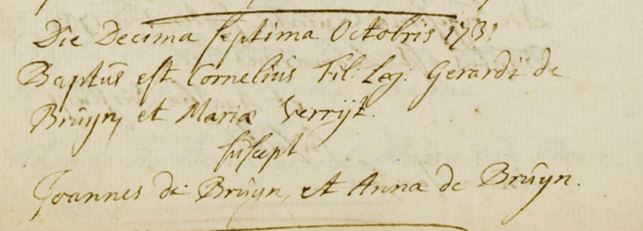 Die Decima septima Octobris 1731
Baptus est Cornelius Fil: Leg: Gerardi de
Bruyn, et Maria Verrijt.
suscept
Joannes de Bruyn, et Anna de Bruyn.